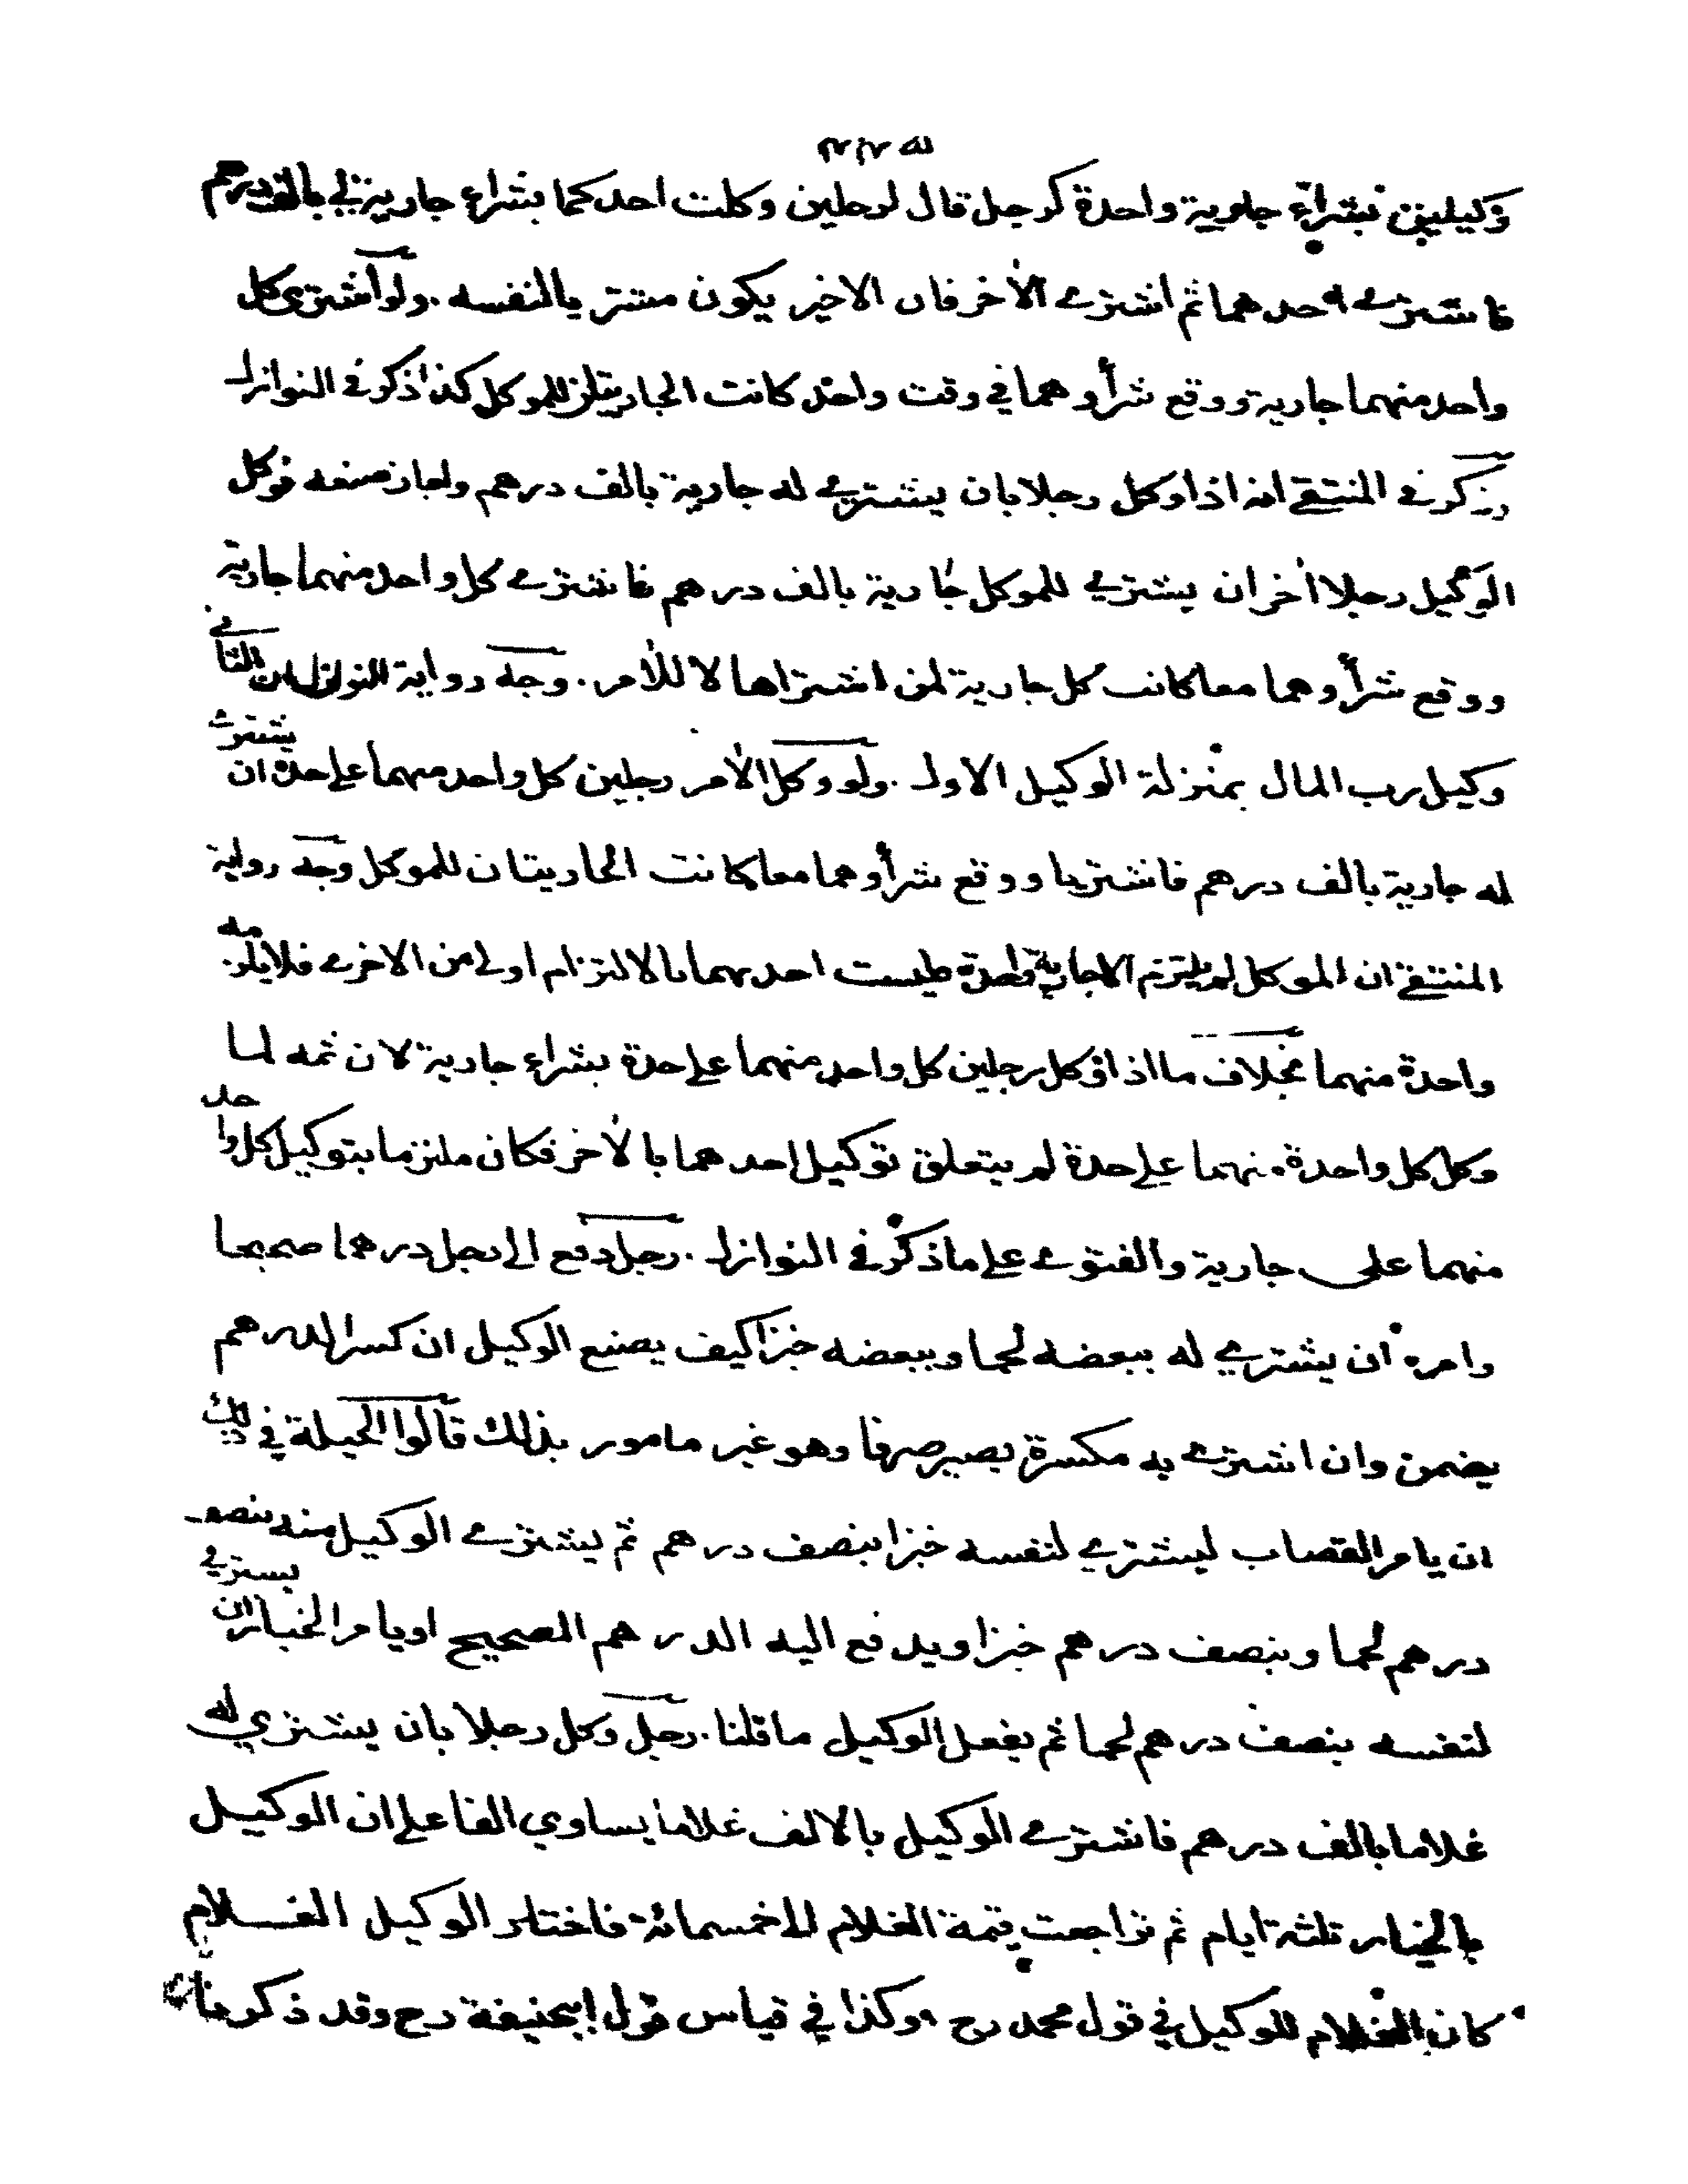 وكيلين بشراء جارية واحدة كرجل قال لرجلين وكلت احدكما بشراء جارية لي بالف درهم
فاشترى احدهما ثم اشترى الآخر فان الاخير يكون مشتريا لنفسه . ولو اشترى كل
واحد منهما جارية ووقع شرأوهما في وقت واحد كانت الجاريتان للموكل كذا ذكر في النوازل
وذكر في المنتقى انه اذا وكل رجلا بان يشتري له جارية بالف درهم واجاز صنعه فوكل
الوكيل رجلا اخران يشتري للموكل جارية بالف درهم فاشترى كل واحد منهما جارية
ووقع شرأوهما معا كانت كل جارية لمن اشتراها لا للآمر . وجه رواية النوازل ان الثاني
وكيل رب المال بمنزلة الوكيل الاول . ولو وكل الآمر رجلين كل واحد منهما على حدة ان يشتري
له جارية بالف درهم فاشتريا ووقع شرأوهما معا كانت الجاريتان للموكل وجه رواية
المنتقى ان الموكل لم يلتزم الا جارية واحدة وليست احدىهما بالالتزام اولى من الاخرى فلا يلزمه
واحدة منهما بخلاف ما اذا وكل رجلين كل واحد منهما على حدة بشراء جارية لان ثمه لما
وكل كل واحدة منهما على حدة لم يتعلق توكيل احدهما بالآخر فكان ملتزما بتوكيل كل واحد
منهما على جارية والفتوى على ما ذكر في النوازل . رجل دفع الى رجل درهما صحيحا
وامره ان يشتري له ببعضه لحما وببعضه خبزا كيف يصنع الوكيل ان كسر الدرهم
يضمن وان اشترى به مكسرة يصير صرفا وهو غير مامور بذلك قالوا الحيلة في ذلك
ان يامر القصاب ليشتري لنفسه خبزا بنصف درهم ثم يشتري الوكيل منه بنصف
درهم لحما وبنصف درهم خبزا ويدفع اليه الدرهم الصحيح او يامر الخباز ان يشتري
لنفسه بنصف درهم لحما ثم يفعل الوكيل ما قلنا . رجل وكل رجلا بان يشتري له
غلاما بالف درهم فاشترى الوكيل بالالف غلاما يساوي الفا على ان الوكيل
بالخيار ثلثة ايام ثم تراجعت قيمة الغلام الى خمسمائة فاختار الوكيل الغلام
كان الغلام للوكيل في قول محمد رح وكذا في قياس قول ابيحنيفة رح وقد ذكرنا